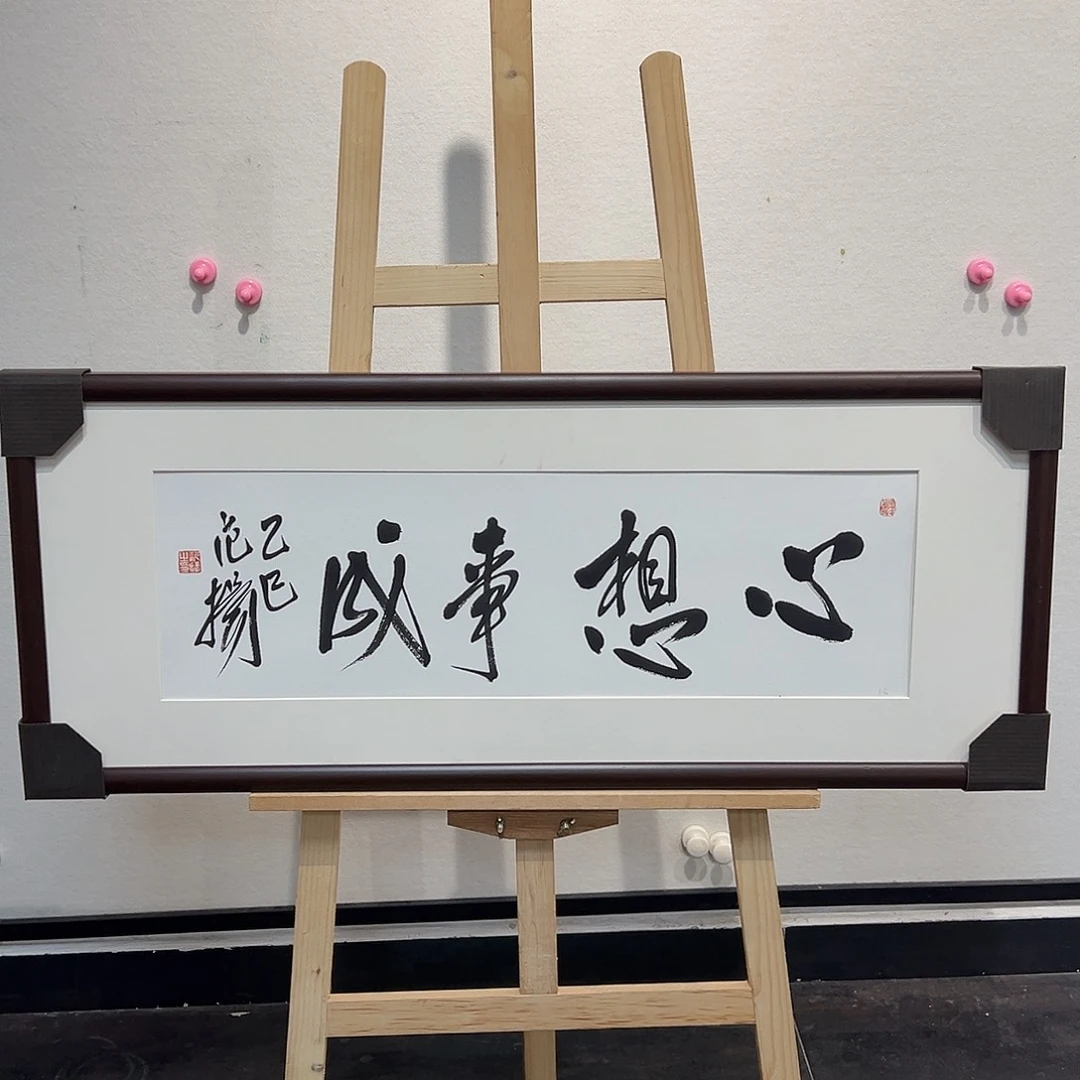 心想事成
乙巳
范